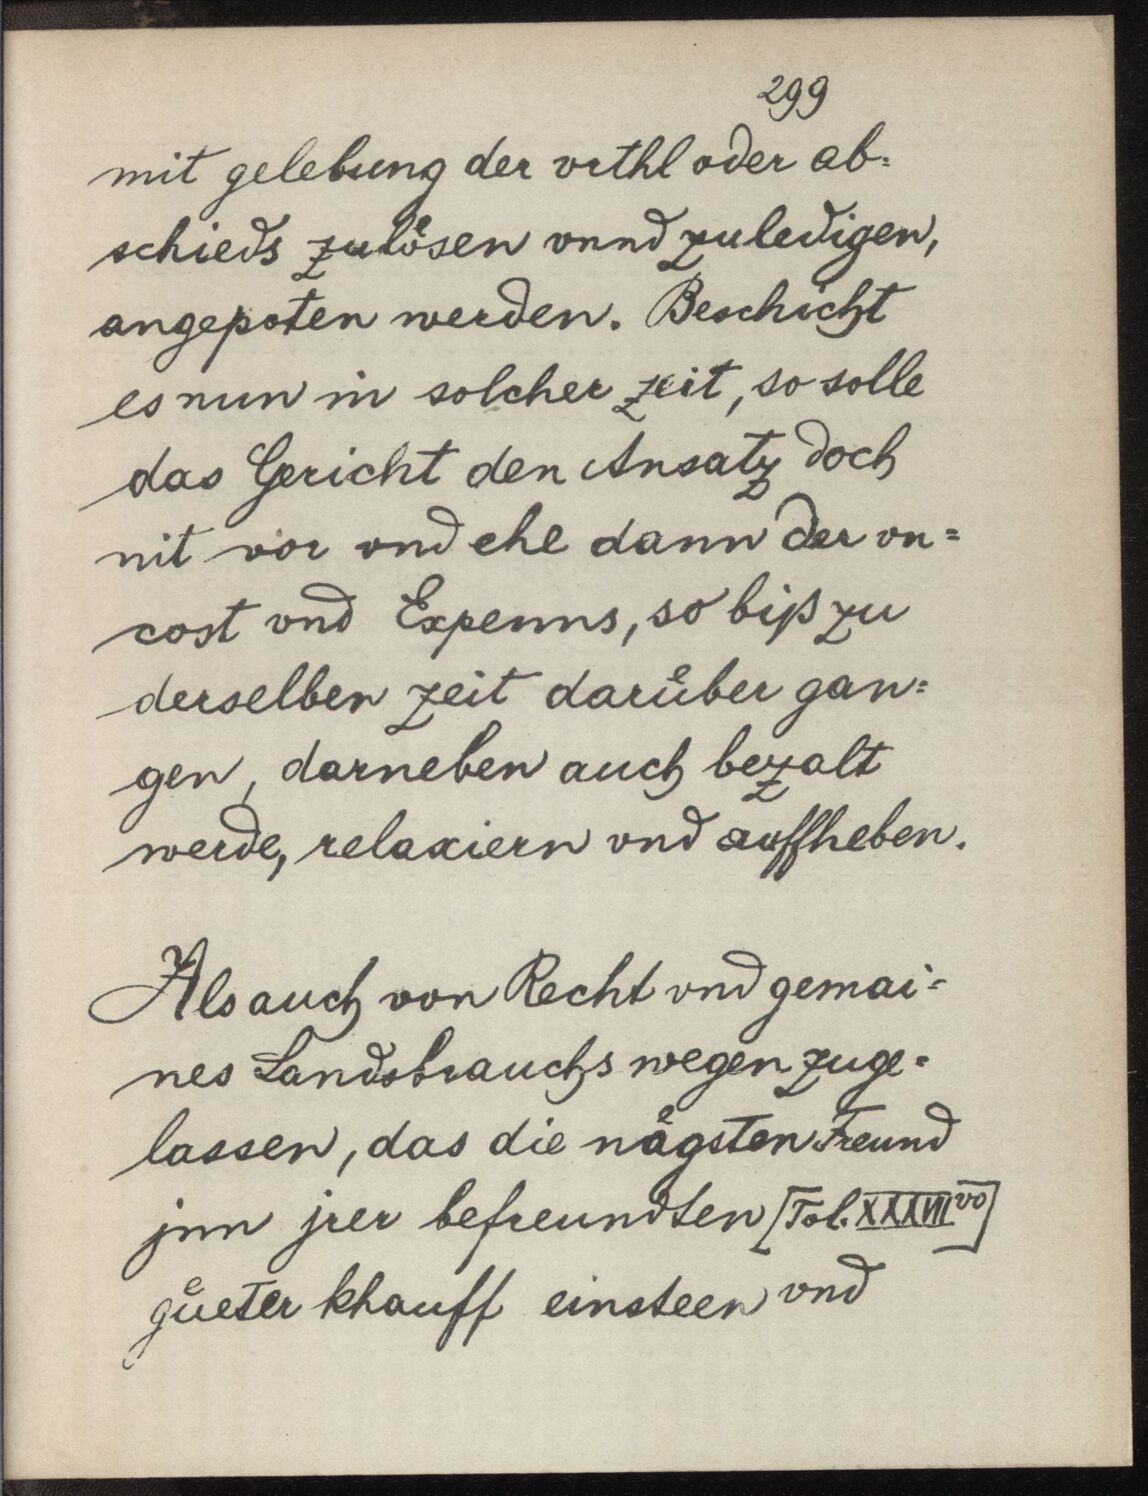 299
mit gelebung der vrthl oder ab=
schieds zulösen vnnd zuledigen,
angepoten werden. Beschicht
es nun in solcher zeit, so solle
das Gericht den Ansatz doch
nit vor vnd ehe dann der vn=
cost vnd Expenns, so biß zu
derselben zeit darüber gan=
gen, darneben auch bezalt
werde, relaxiern vnd auffheben.
Als auch von Recht vnd gemai=
nes Landsbrauchs wegen zuge=
lassen, das die nägsten Freund
jnn jrer befreundten [Fol. XXXVII vo]
güeter khauff einsteen vnd